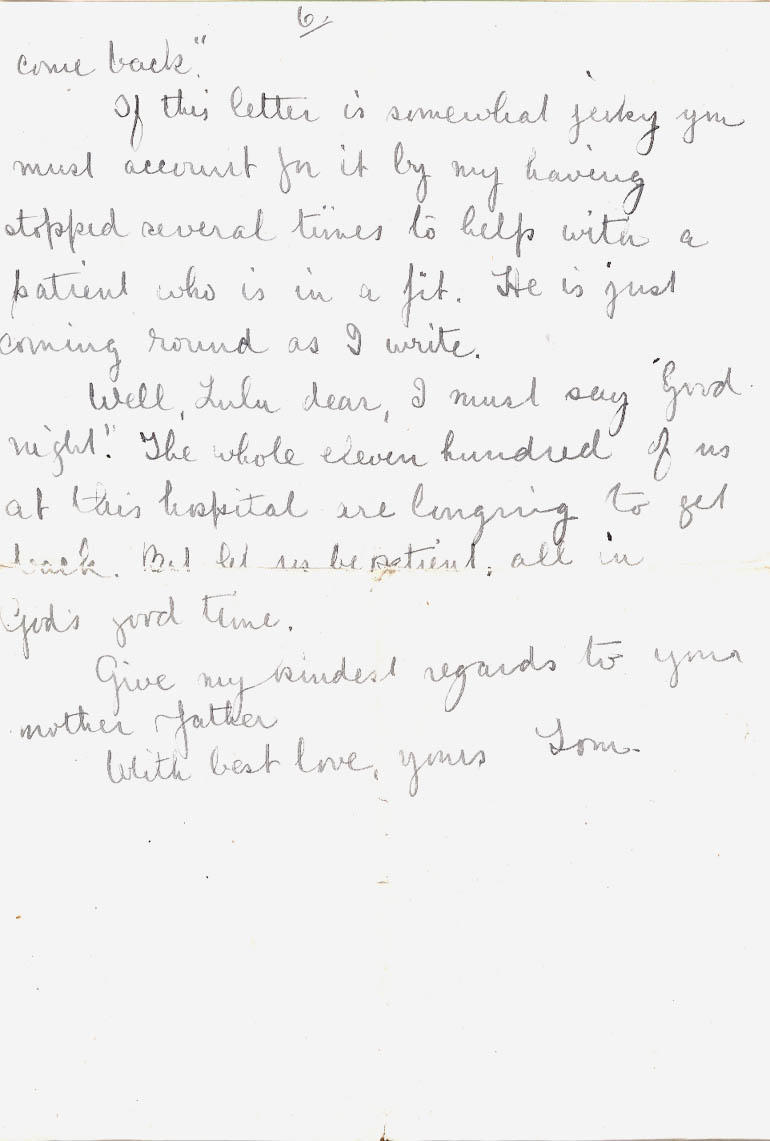 6.
come back".
If this letter is somewhat jerky you
must account for it by my having
stopped several times to help with a
patient who is in a fit. He is just
coming round as I write.
Well, Lulu dear, I must say "Good
night". The whole eleven hundred of us
at this hospital are longing to get
back. But let us be patient, all in
God's good time.
Give my kindest regards to your
mother & father
With best love, yours Tom.